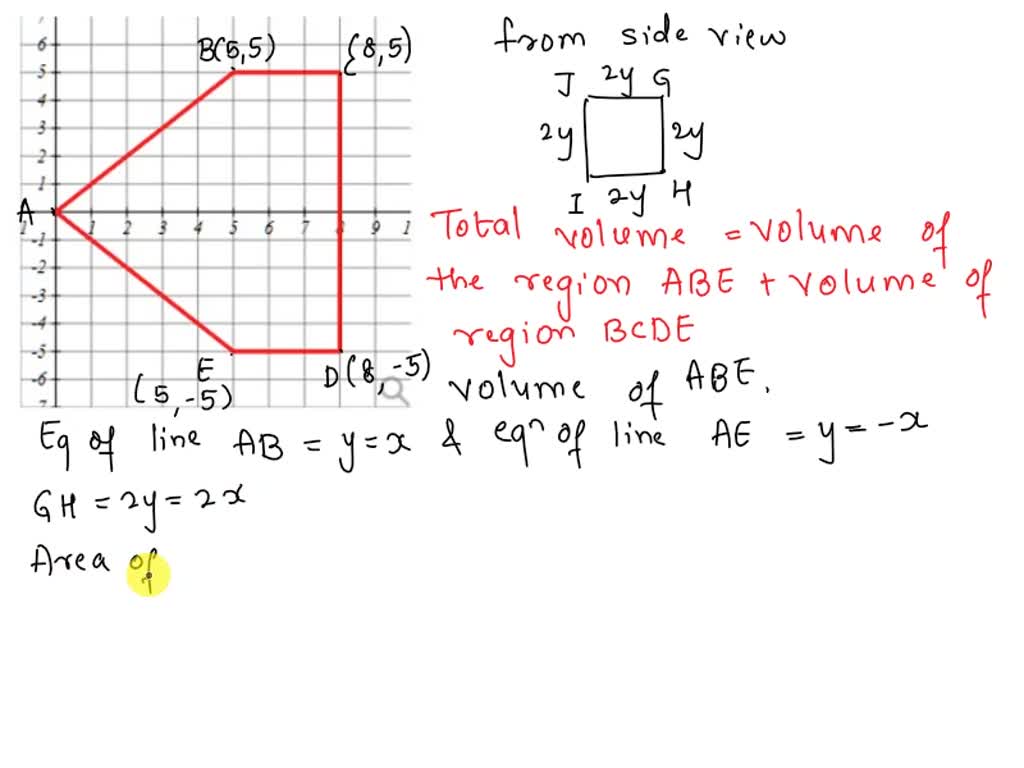 B(5,5) (8,5)
6
5
4
3
2
1
A
1 2 3 4 5 6 7 8 9 1
-1
-2
-3
-4
-5
-6
E
(5,-5)
D(8,-5)
from side view
J 2y G
2y 2y
I 2y H
Total volume = volume of
the region ABE + volume of
region BCDE
volume of ABE.
Eq of line AB = y = x & eqn of line AE = y = -x
GH = 2y = 2x
Area of